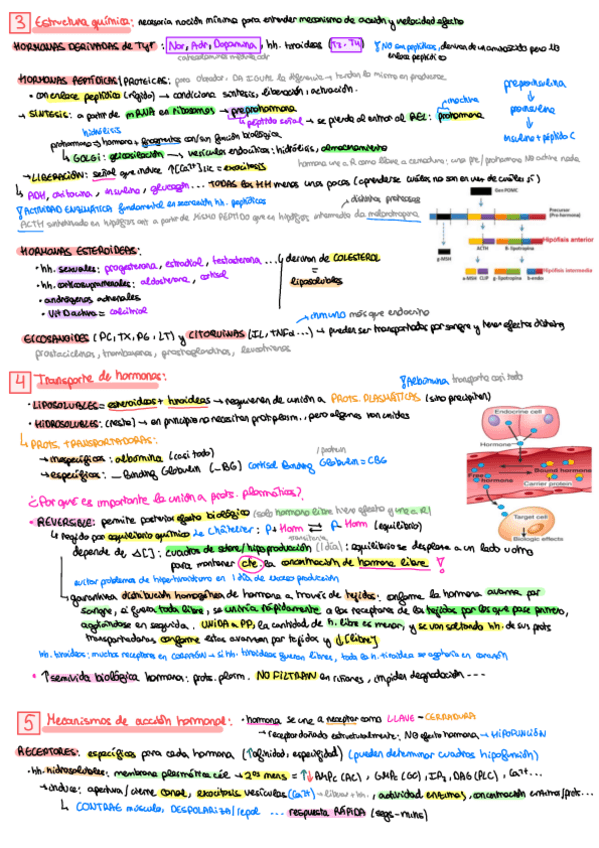 3 Estructura química: necesaria noción mínima para entender mecanismo de acción y velocidad efecto
HORMONAS DERIVADAS DE Tyr: Nor, Adr, Dopamina, hh. tiroideas (T3, T4)
catecolaminas médula adr
! NO son peptídicas, derivan de un aminoácido pero NO
enlace peptídico
HORMONAS PEPTÍDICAS/PROTEICAS:
• con enlace peptídico (rígido) → condiciona síntesis, liberación, actuación.
→ SÍNTESIS: a partir de mRNA en ribosomas → preprohormona
inactiva
péptido señal → se pierde al entrar al REL: prohormona
hidrólisis
prohormona → hormona + fragmentos con/sin función biológica
↳ GOLGI: glicosilación → vesículas endocíticas: hidrólisis, almacenamiento
preproinsulina
↓
proinsulina
↓
insulina + péptido C
hormona une a R como llave a cerradura: una pre/prohormona NO active nada
→ LIBERACIÓN: señal que induce ↑[Ca2+]ic = exocitosis
↳ ADH, oxitocina, insulina, glucagón... TODAS las HH menos unas pocas (aprenderse cuáles no son en vez de cuáles sí)
! ACTIVIDAD ENZIMÁTICA fundamental en secreción hh. peptídicas
distintas proteasas
ACTH sintetizada en hipófisis ant a partir de MISMO PÉPTIDO que en hipófisis intermedia da melanotropina
Gen POMC
Precursor
(Pro-hormona)
Hipófisis anterior
g-MSH
ACTH
B-lipotropina
Hipófisis intermedia
a-MSH CLIP g-lipotropina b-endo
HORMONAS ESTEROIDEAS:
• hh. sexuales: progesterona, estradiol, testosterona ...
• hh. corticosuprarrenales: aldosterona, cortisol
• andrógenos adrenales
• Vit D activa = calcitriol
↳ derivan de COLESTEROL
=
liposolubles
inmuno más que endocrino
EICOSANOIDES (PC, TX, PG, LT) y CITOQUINAS (IL, TNFα...) → pueden ser transportados por sangre y tener efectos distintos
prostaciclinas, tromboxanos, prostaglandinas, leucotrienos
4 Transporte de hormonas:
! Albúmina transporta casi todo
• LIPOSOLUBLES = esteroideas + tiroideas → requieren de unión a PROTS. PLASMÁTICAS (sino precipitan)
• HIDROSOLUBLES: (resto) → en principio no necesitan prot. plasm., pero algunas van unidas
↳ PROTS. TRANSPORTADORAS:
→ inespecíficas: albúmina (casi todo)
proteín
→ específicas: _ Binding Globulin (_BG) Cortisol Binding Globulin = CBG
Endocrine cell
Hormone
Free hormone
Bound hormone
Carrier protein
Target cell
Biologic effects
¿Por qué es importante la unión a prots. plasmáticas?
• REVERSIBLE: permite posterior efecto biológico (solo hormona libre tiene efecto y une a R)
↳ regido por equilibrio químico de Châtelier: P + Horm ⇄ P. Horm (equilibrio)
transitoria
depende de Δ[ ]: cuadros de sobre/hipoproducción (1 día): equilibrio se desplaza a un lado u otro
para mantener cte. la concentración de hormona libre !
evitar problemas de hiperfunción en 1 día de exceso producción
↳ garantiza distribución homogénea de hormona a través de tejidos: conforme la hormona avanza por
sangre, si fuera toda libre, se uniría rápidamente a los receptores de los tejidos por los que pase primero,
agotándose en seguida. UNIDA a PP, la cantidad de h. libre es menor, y se van soltando hh. de sus prots
transportadoras conforme estas avanzan por tejidos y ↓[libre]
hh. tiroideas: muchos receptores en CORAZÓN → si hh. tiroideas fueran libres, toda la h. tiroidea se agotaría en corazón
• ↑ semivida biológica hormona: prots. plasm. NO FILTRAN en riñones, impiden degradación ---
5 Mecanismos de acción hormonal: • hormona se une a receptor como LLAVE - CERRADURA
→ receptor dañado estructuralmente: NO efecto hormona → HIPOFUNCIÓN
RECEPTORES: específicos para cada hormona (↑afinidad, especificidad) (pueden determinar cuadros hipofunción)
• hh. hidrosolubles: membrana plasmática cél. → 2os mens = ↑↓ AMPc (AC), GMPc (GC), IP3, DAG (PLC), Ca2+...
→ induce: apertura/cierre canal, exocitosis vesículas (Ca2+) → liberar hh., actividad enzimas, concentración enzima/prots...
↳ CONTRAE músculo, DESPOLARIZA/repol ... respuesta RÁPIDA (segs-mins)